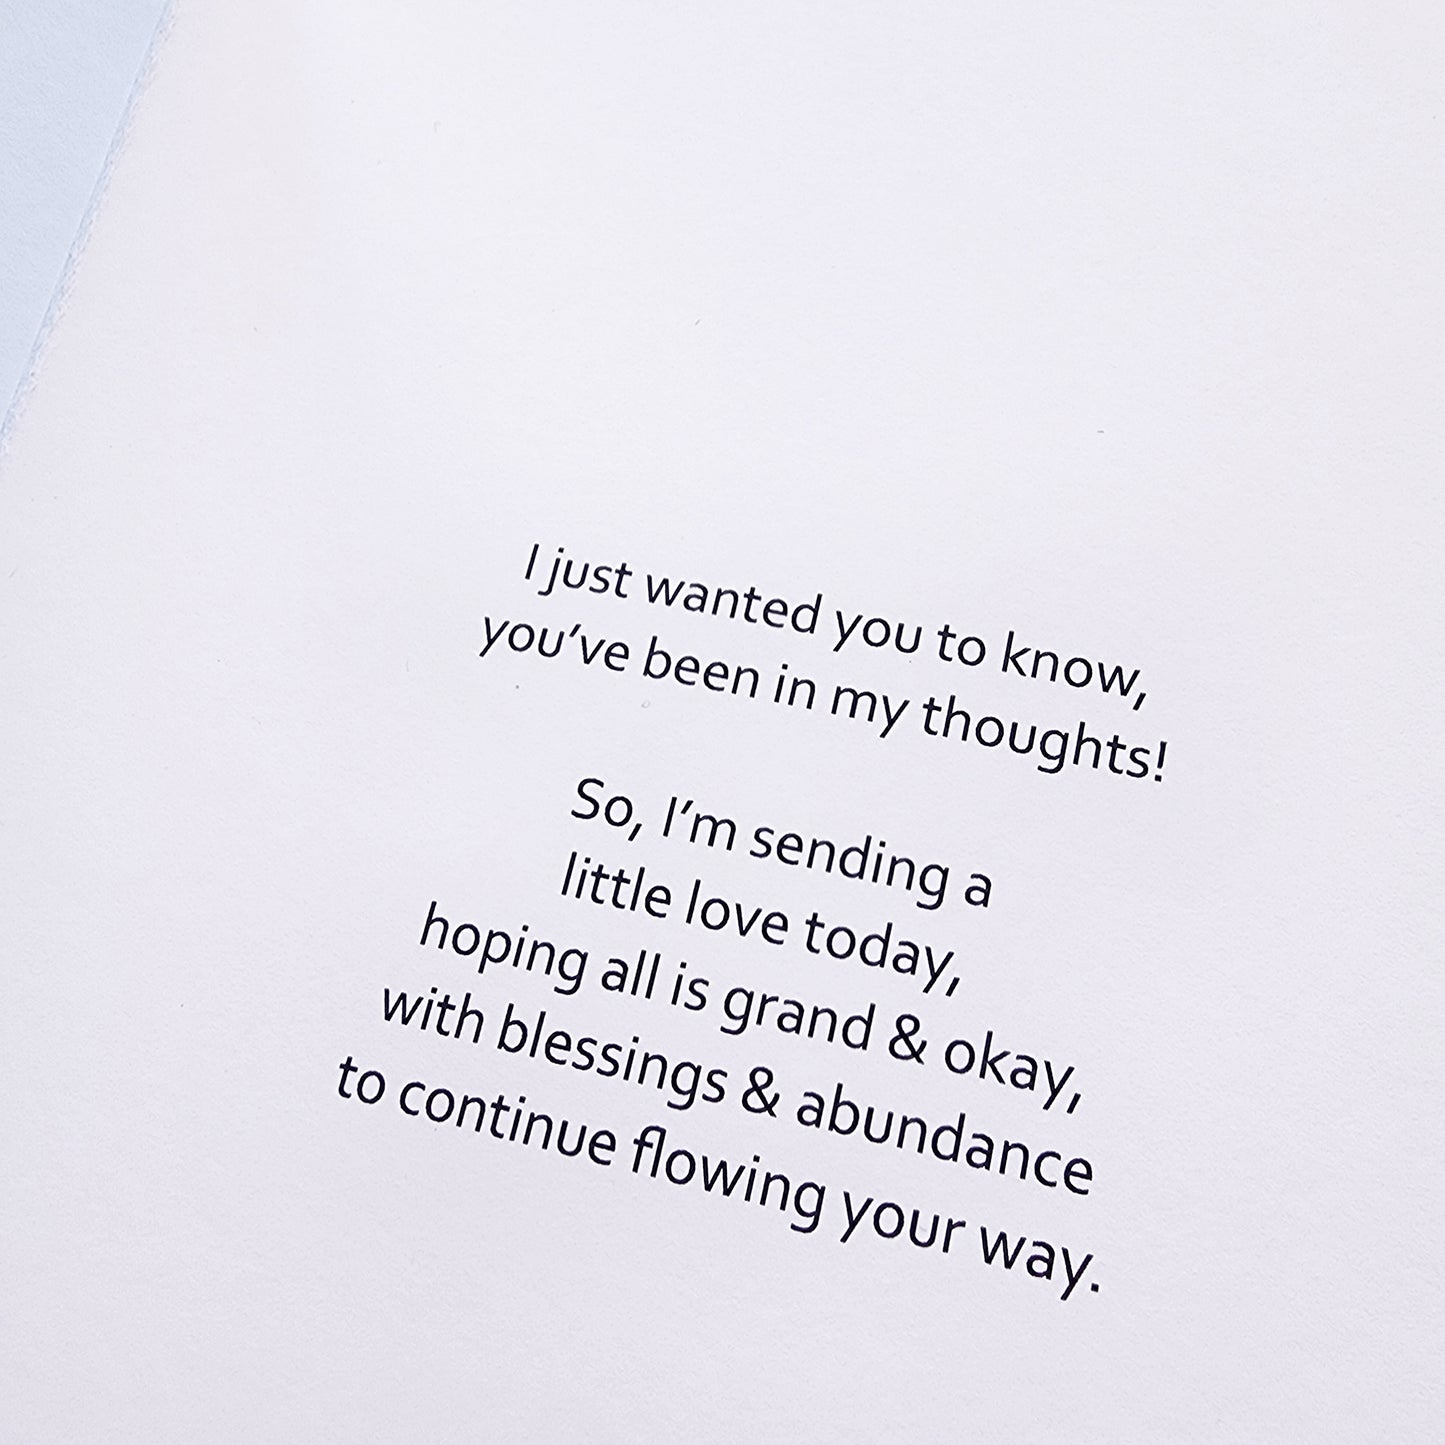 I just wanted you to know,
you’ve been in my thoughts!
So, I’m sending a
little love today,
hoping all is grand & okay,
with blessings & abundance
to continue flowing your way.